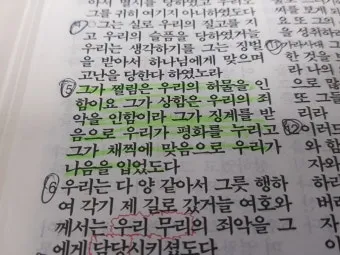 서 멸시를 당하였고 우리
그를 귀히 여기지 아니하였도다
그는 실로 우리의 질고를 지
고 우리의 슬픔을 당하였거늘
우리는 생각하기를 그는 징벌
을 받아서 하나님에게 맞으며
고난을 당한다 하였노라
5 그가 찔림은 우리의 허물을 인
함이요 그가 상함은 우리의 죄
악을 인함이라 그가 징계를 받
음으로 우리가 평화를 누리고
그가 채찍에 맞음으로 우리가
나음을 입었도다
6 우리는 다 양 같아서 그릇 행하
여 각기 제 길로 갔거늘 여호와
께서는 우리 무리의 죄악을 그
에게 담당시키셨도다
요 또 그의
을 성취하리
11 가라대 그
한 것을 보
라 나의
또 그들
12 이러므
와 함
자와
하라
버려
라